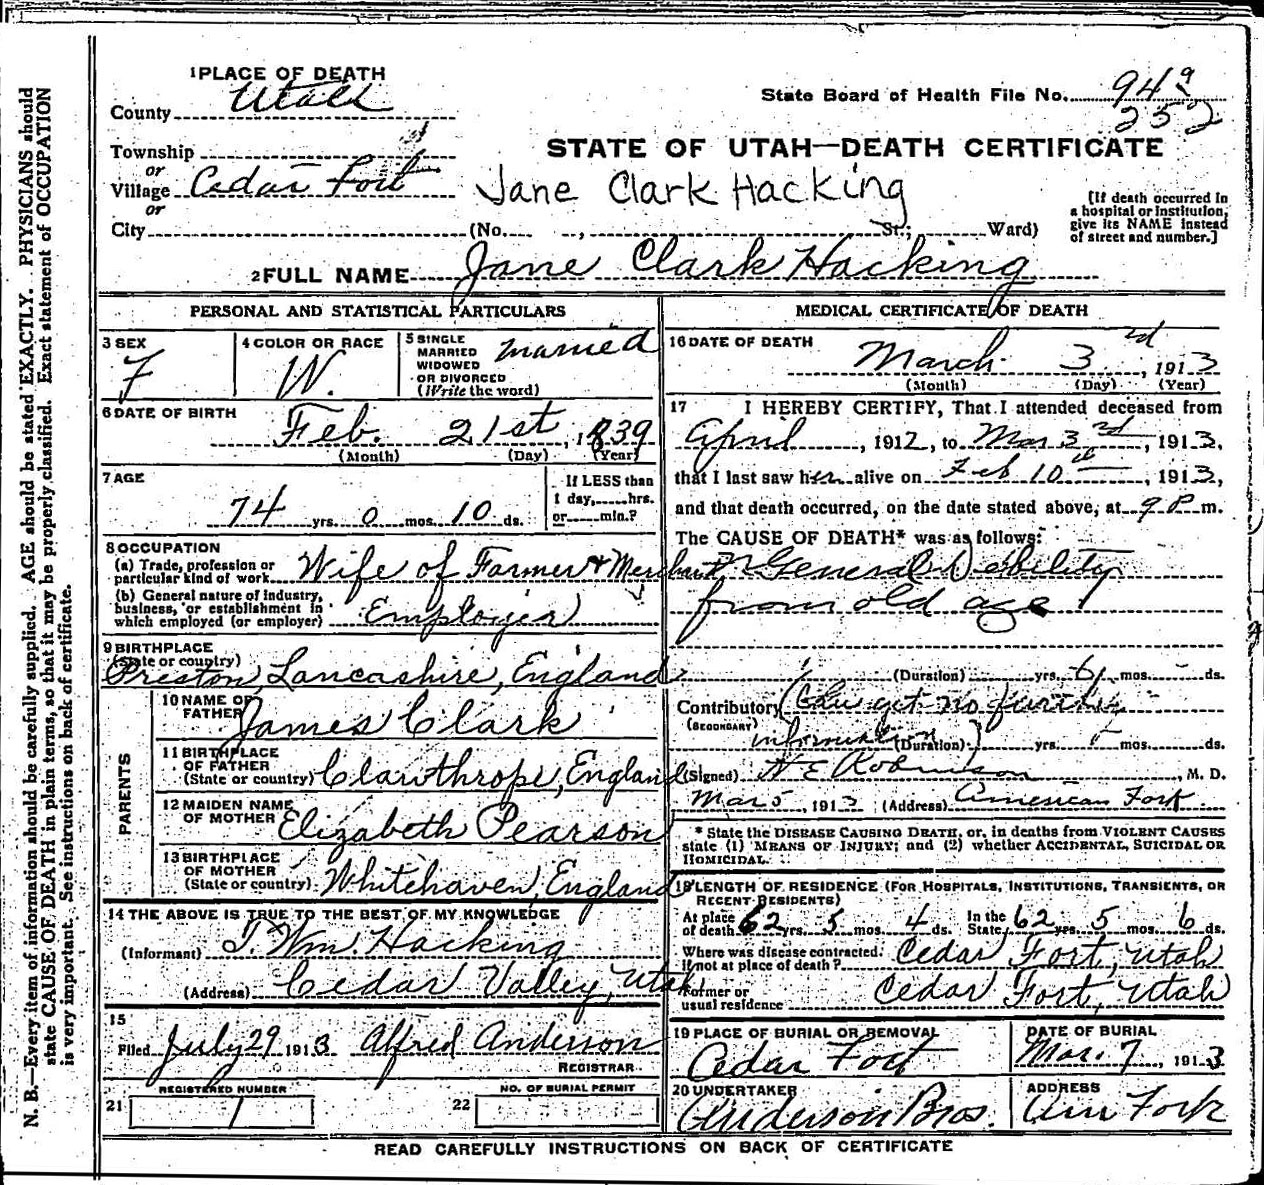 1 PLACE OF DEATH
County Utah
State Board of Health File No. 94 9
252
Township
or
Village Cedar Fort
or
City
STATE OF UTAH—DEATH CERTIFICATE
Jane Clark Hacking
(No. , St.; Ward)
[If death occurred in
a hospital or institution,
give its NAME instead
of street and number.]
2 FULL NAME Jane Clark Hacking
PERSONAL AND STATISTICAL PARTICULARS
3 SEX
F
4 COLOR OR RACE
W.
5 SINGLE
MARRIED
WIDOWED
OR DIVORCED
(Write the word)
married
6 DATE OF BIRTH
Feb. 21st, 1839
(Month) (Day) (Year)
7 AGE
74 yrs. 0 mos. 10 ds.
If LESS than
1 day, hrs.
or min.?
8 OCCUPATION
(a) Trade, profession or
particular kind of work Wife of Farmer & Merchant
(b) General nature of industry,
business, or establishment in
which employed (or employer) Employer
9 BIRTHPLACE
(State or country)
Preston, Lancashire, England
PARENTS
10 NAME OF
FATHER James Clark
11 BIRTHPLACE
OF FATHER
(State or country) Clawthrope, England
12 MAIDEN NAME
OF MOTHER Elizabeth Pearson
13 BIRTHPLACE
OF MOTHER
(State or country) Whitehaven, England
14 THE ABOVE IS TRUE TO THE BEST OF MY KNOWLEDGE
(Informant) T. Wm. Hacking
(Address) Cedar Valley, Utah
15
Filed July 29 1913 Alfred Anderson
REGISTRAR
REGISTERED NUMBER
21 1
NO. OF BURIAL PERMIT
22
MEDICAL CERTIFICATE OF DEATH
16 DATE OF DEATH
March 3rd, 1913
(Month) (Day) (Year)
17 I HEREBY CERTIFY, That I attended deceased from
April, 1912, to Mar 3rd, 1913,
that I last saw her alive on Feb 10th, 1913,
and that death occurred, on the date stated above, at 9 P m.
The CAUSE OF DEATH* was as follows:
General Debility
from old age
(Duration) yrs. 6 mos. ds.
Contributory (Can get no further
(SECONDARY) information) (Duration) yrs. mos. ds.
(Signed) H E Robinson, M. D.
Mar 5, 1913 (Address) American Fork
* State the DISEASE CAUSING DEATH, or, in deaths from VIOLENT CAUSES
state (1) MEANS OF INJURY; and (2) whether ACCIDENTAL, SUICIDAL OR
HOMICIDAL.
18 LENGTH OF RESIDENCE (FOR HOSPITALS, INSTITUTIONS, TRANSIENTS, OR
RECENT RESIDENTS)
At place
of death 62 yrs. 5 mos. 4 ds.
In the
State, 62 yrs. 5 mos. 6 ds.
Where was disease contracted,
if not at place of death? Cedar Fort, Utah
Former or
usual residence Cedar Fort, Utah
19 PLACE OF BURIAL OR REMOVAL
Cedar Fort
DATE OF BURIAL
Mar. 7, 1913
20 UNDERTAKER
Anderson Bros.
ADDRESS
Am Fork
READ CAREFULLY INSTRUCTIONS ON BACK OF CERTIFICATE
N. B.—Every item of information should be carefully supplied. AGE should be stated EXACTLY. PHYSICIANS should
state CAUSE OF DEATH in plain terms, so that it may be properly classified. Exact statement of OCCUPATION
is very important. See instructions on back of certificate.